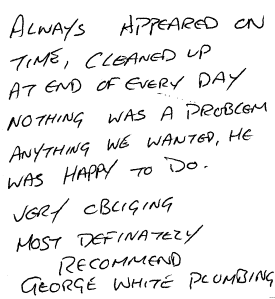 ALWAYS APPEARED ON
TIME, CLEANED UP
AT END OF EVERY DAY
NOTHING WAS A PROBLEM
ANYTHING WE WANTED, HE
WAS HAPPY TO DO.
VERY OBLIGING
MOST DEFINATELY
RECOMMEND
GEORGE WHITE PLUMBING